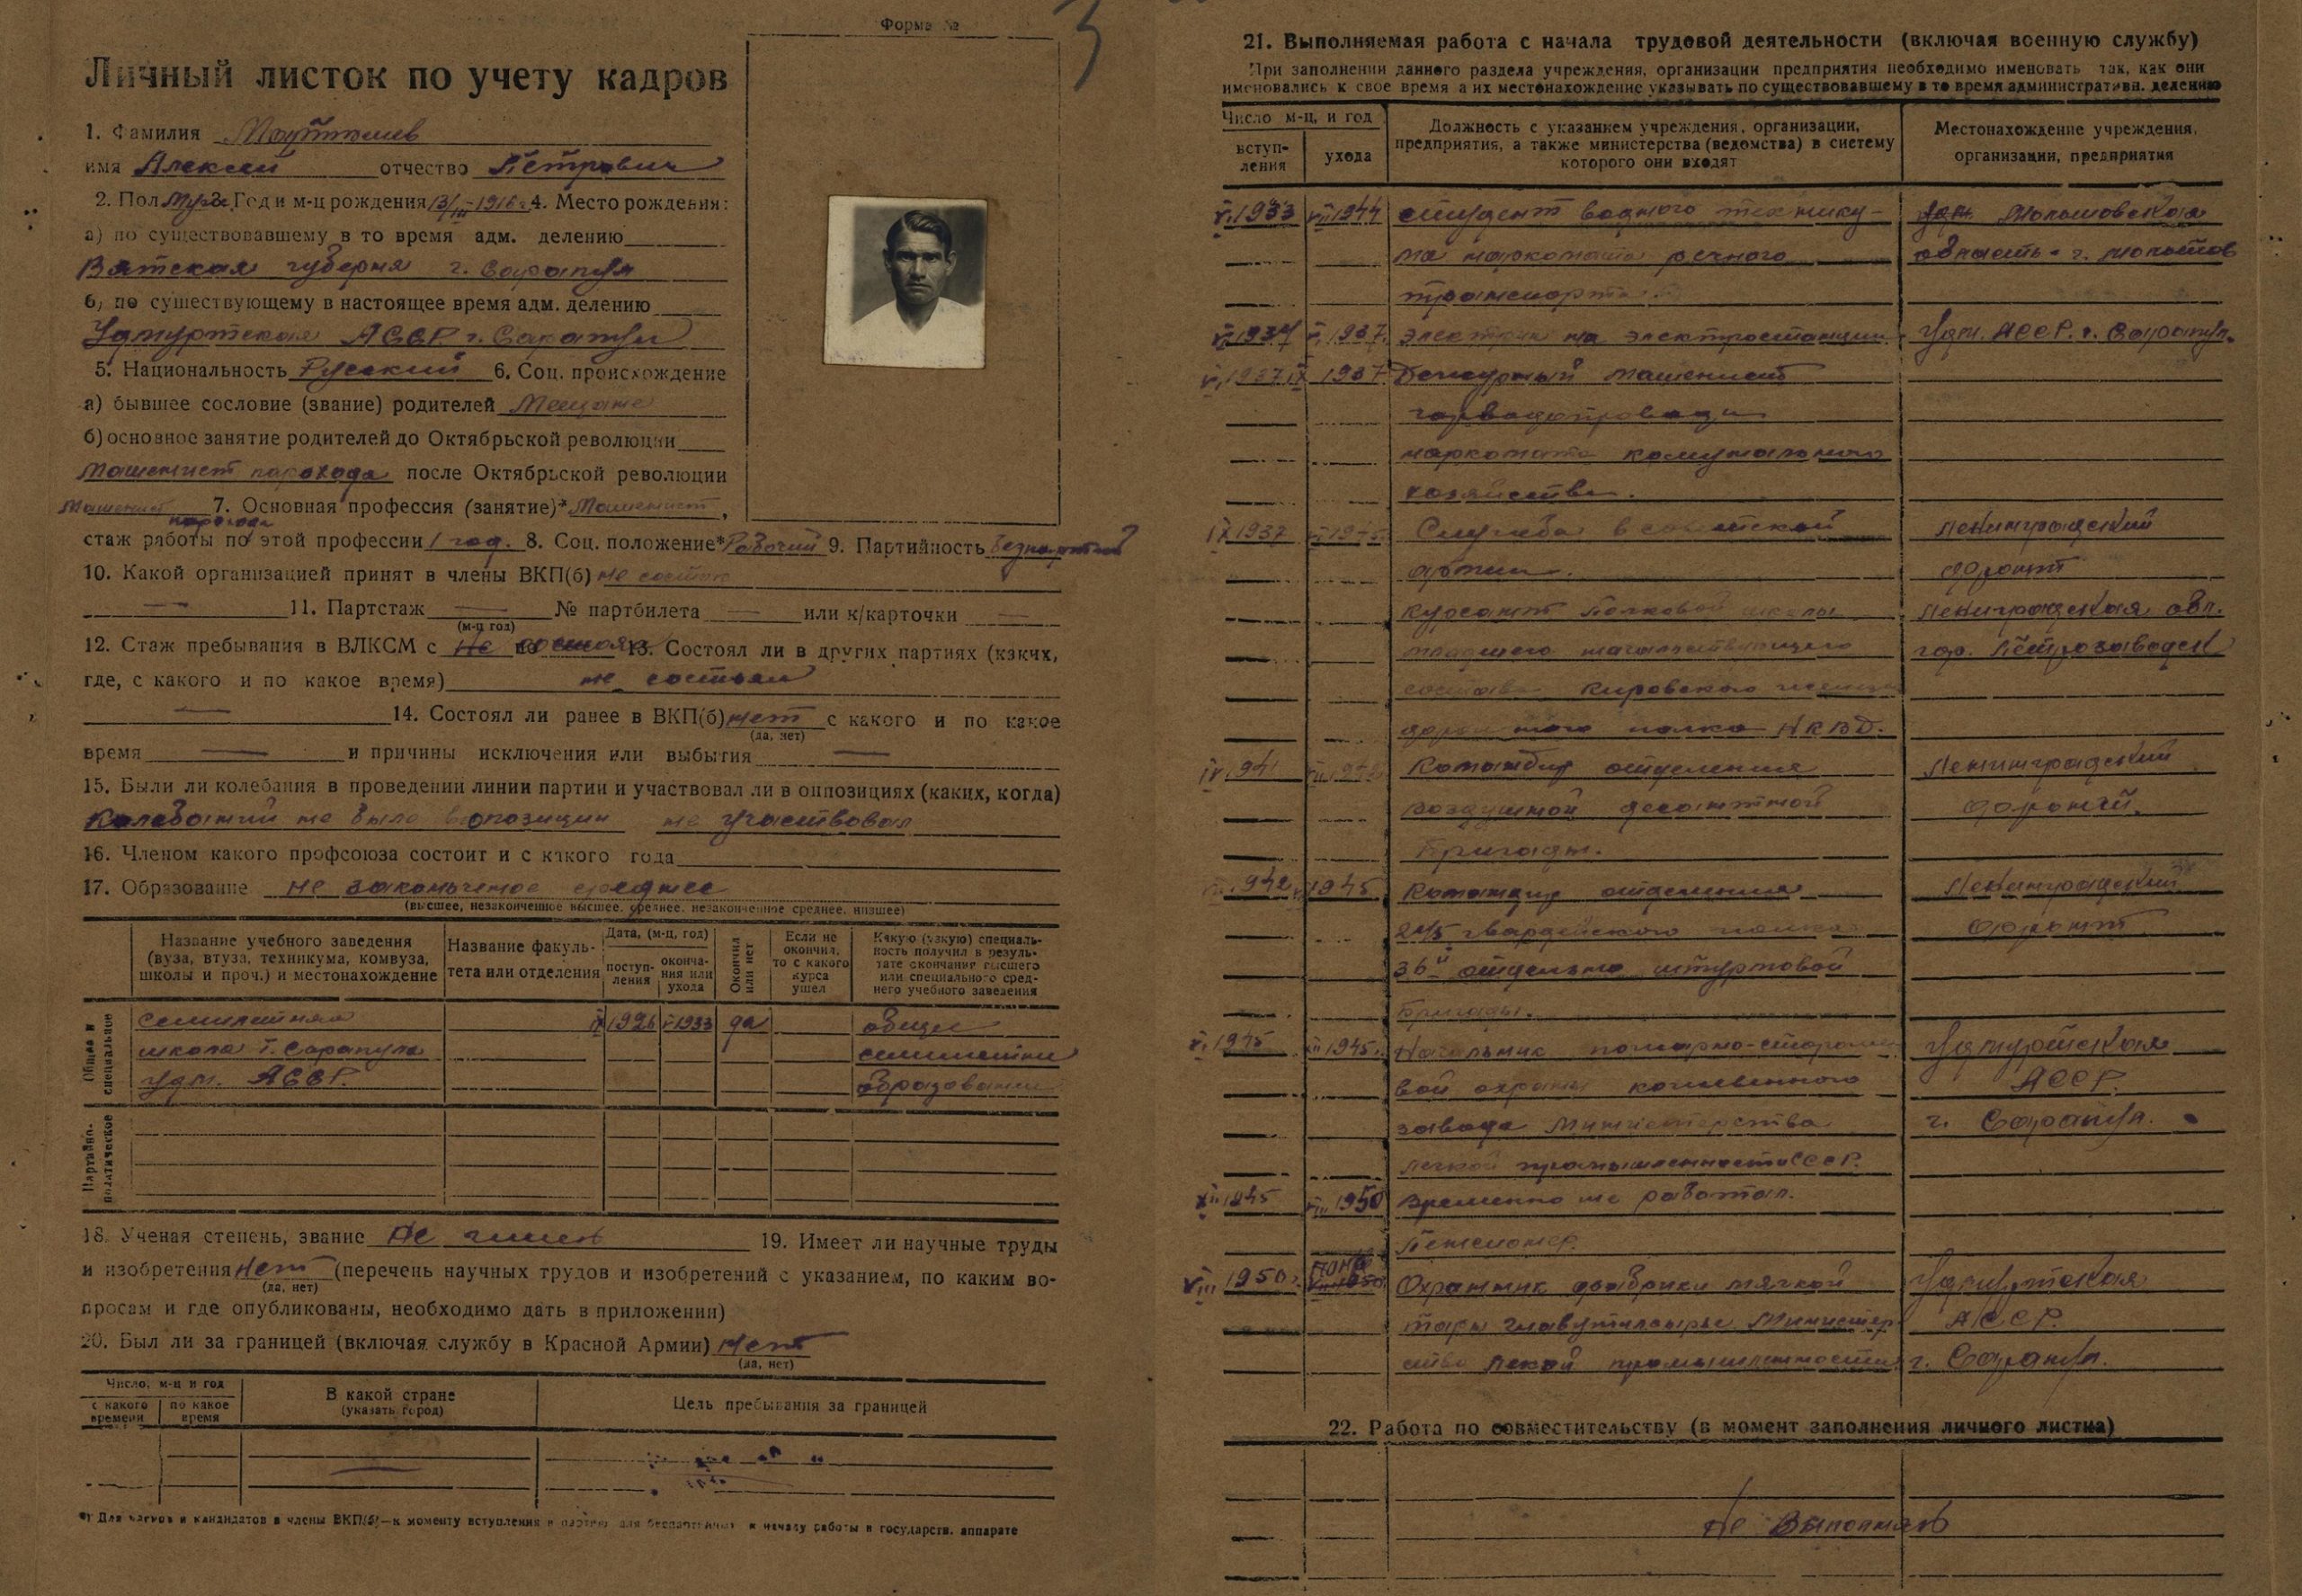 Форма №
3
Личный листок по учету кадров
1. Фамилия
имя Алексей отчество Петрович
2. Пол муж. 3. Год и м-ц рождения 13/III-1916 г. 4. Место рождения:
а) по существовавшему в то время адм. делению
Вятская губерня г. Сарапул
б) по существующему в настоящее время адм. делению
Удмуртская АССР г. Сарапул
5. Национальность Русский 6. Соц. происхождение
а) бывшее сословие (звание) родителей Мещане
б) основное занятие родителей до Октябрьской революции
Машенист парохода после Октябрьской революции
Машенист парохода 7. Основная профессия (занятие)* Машенист,
стаж работы по этой профессии 1 год. 8. Соц. положение* Рабочий 9. Партийность безпартий
10. Какой организацией принят в члены ВКП(б) не состою
— 11. Партстаж — № партбилета — или к/карточки —
(м-ц год)
12. Стаж пребывания в ВЛКСМ с Не состоял 13. Состоял ли в других партиях (каких,
где, с какого и по какое время) не состоял
— 14. Состоял ли ранее в ВКП(б) нет с какого и по какое
(да, нет)
время — и причины исключения или выбытия —
15. Были ли колебания в проведении линии партии и участвовал ли в оппозициях (каких, когда)
Колебаний не было в опозиции не участвовал
16. Членом какого профсоюза состоит и с какого года
17. Образование не законченое среднее
(высшее, незаконченное высшее, среднее, незаконченное среднее, низшее)
Название учебного заведения (вуза, втуза, техникума, комвуза, школы и проч.) и местонахождение
Название факультета или отделения
Дата, (м-ц, год)
поступления
окончания или ухода
Окончил или нет
Если не окончил, то с какого курса ушел
Какую (узкую) специальность получил в результате окончания высшего или специального среднего учебного заведения
Общее и специальное
семилетняя IX 1926 V 1933 да общее
школа г. Сарапула семилетнее
Удм. АССР. образование
Партийно-политическое
18. Ученая степень, звание Не имею 19. Имеет ли научные труды
и изобретения нет (перечень научных трудов и изобретений с указанием, по каким во-
(да, нет)
просам и где опубликованы, необходимо дать в приложении)
20. Был ли за границей (включая службу в Красной Армии) нет
(да, нет)
Число, м-ц и год
с какого времени
по какое время
В какой стране
(указать город)
Цель пребывания за границей
*) Для членов и кандидатов в члены ВКП(б)—к моменту вступления в партию для беспартийных к началу работы в государств. аппарате
21. Выполняемая работа с начала трудовой деятельности (включая военную службу)
При заполнении данного раздела учреждения, организации предприятия необходимо именовать так, как они
именовались к свое время а их местонахождение указывать по существовавшему в то время административн. делению
Число м-ц, и год
вступления
ухода
Должность с указанием учреждения, организации, предприятия, а также министерства (ведомства) в систему которого они входят
Местонахождение учреждения, организации, предприятия
1933 1944 студент водного технику- Молотовская
ма наркомата речного область г. Молотов
транспорта.
1937 1937 электрик на электростанции Удм. АССР. г. Сарапул.
1937 IX 1937 Дежурный машенист
наркомата комунального
хозяйства.
IX 1937 Служба в советской Ленинградский
армии. фронт
курсант полковой школы Ленинградская обл.
младшего начальствующего гор. Петрозаводск
состава Кировского
полка НКВД.
Командир отделения Ленинградский
воздушной десантной фронт.
бригады.
1942 1945 Командир отделения Ленинградский
245 гвардейского полка фронт
36й отдельно штурмовой
бригады.
1945 1945 Начальник пожарно-сторожевой охраны кожевенного Удмуртская АССР.
завода Министерства г. Сарапул.
легкой промышленности СССР.
XII 1945 VIII 1950 Временно не работал.
Пенсионер.
VIII 1950 Охранник фабрики мягкой Удмуртская
тары главутильсырье Министер АССР.
ства легкой промышленности г. Сарапул.
22. Работа по совместительству (в момент заполнения личного листка)
Не выполняю